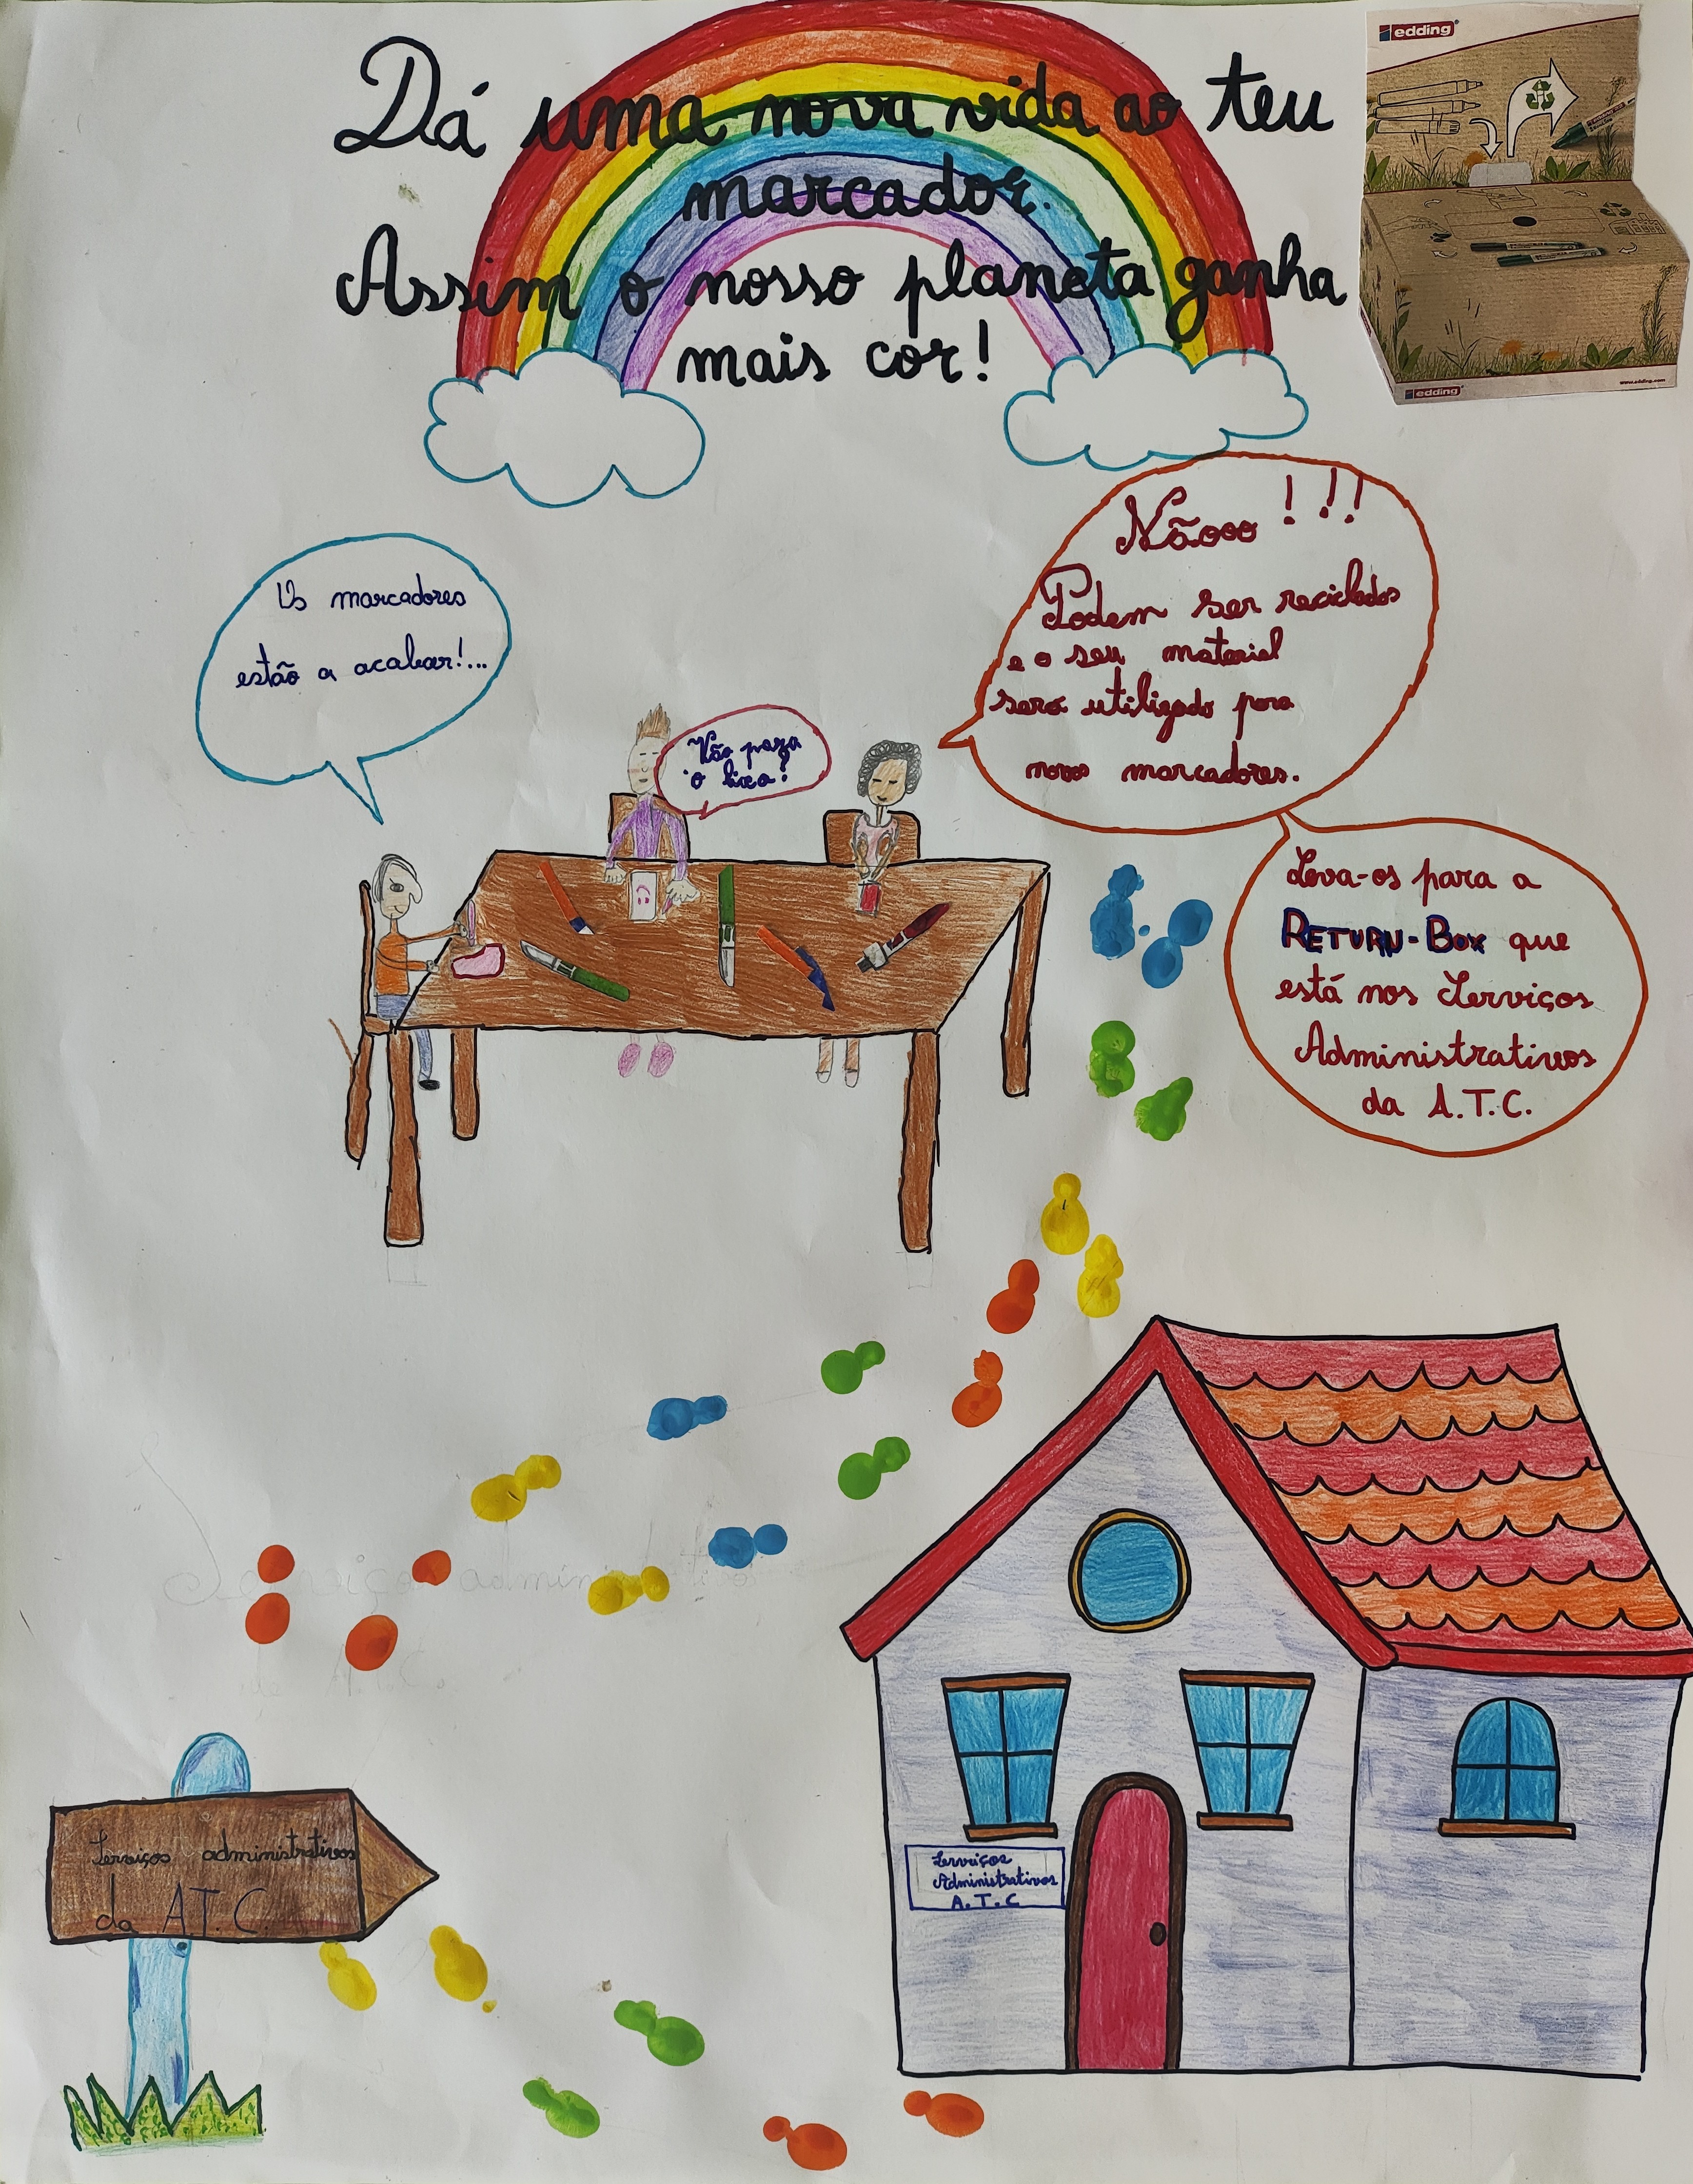 Dá uma nova vida ao teu
marcador.
Assim o nosso planeta ganha
mais cor!
edding
edding
www.edding.com
Os marcadores
estão a acabar!...
Vão para
o lixo!
Nãooo!!!
Podem ser reciclados
e o seu material
será utilizado para
novos marcadores.
Leva-os para a
RETURN-BOX que
está nos Serviços
Administrativos
da A.T.C.
Serviços administrativos
da A.T.C.
Serviços administrativos
da A.T.C.
Serviços
Administrativos
A.T.C